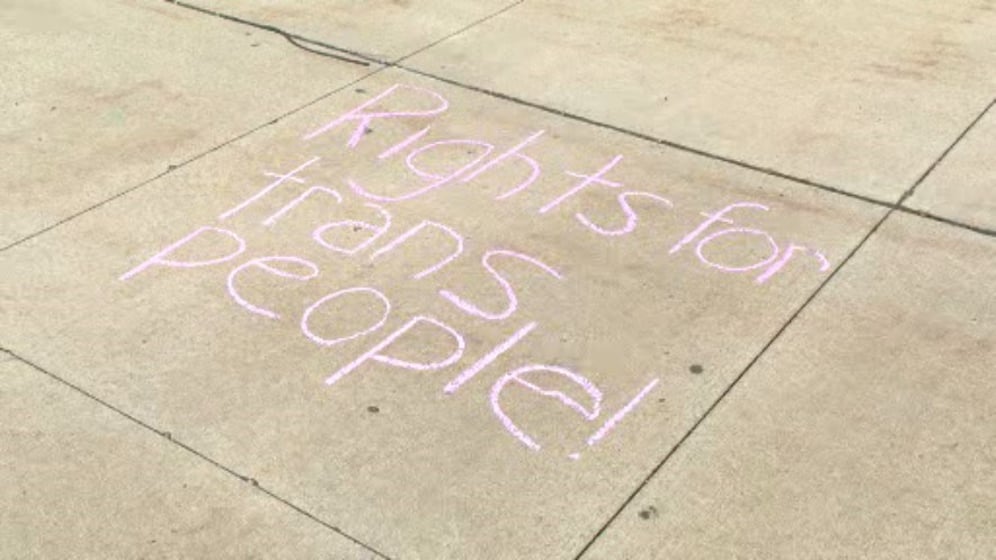 Rights for
trans
people!